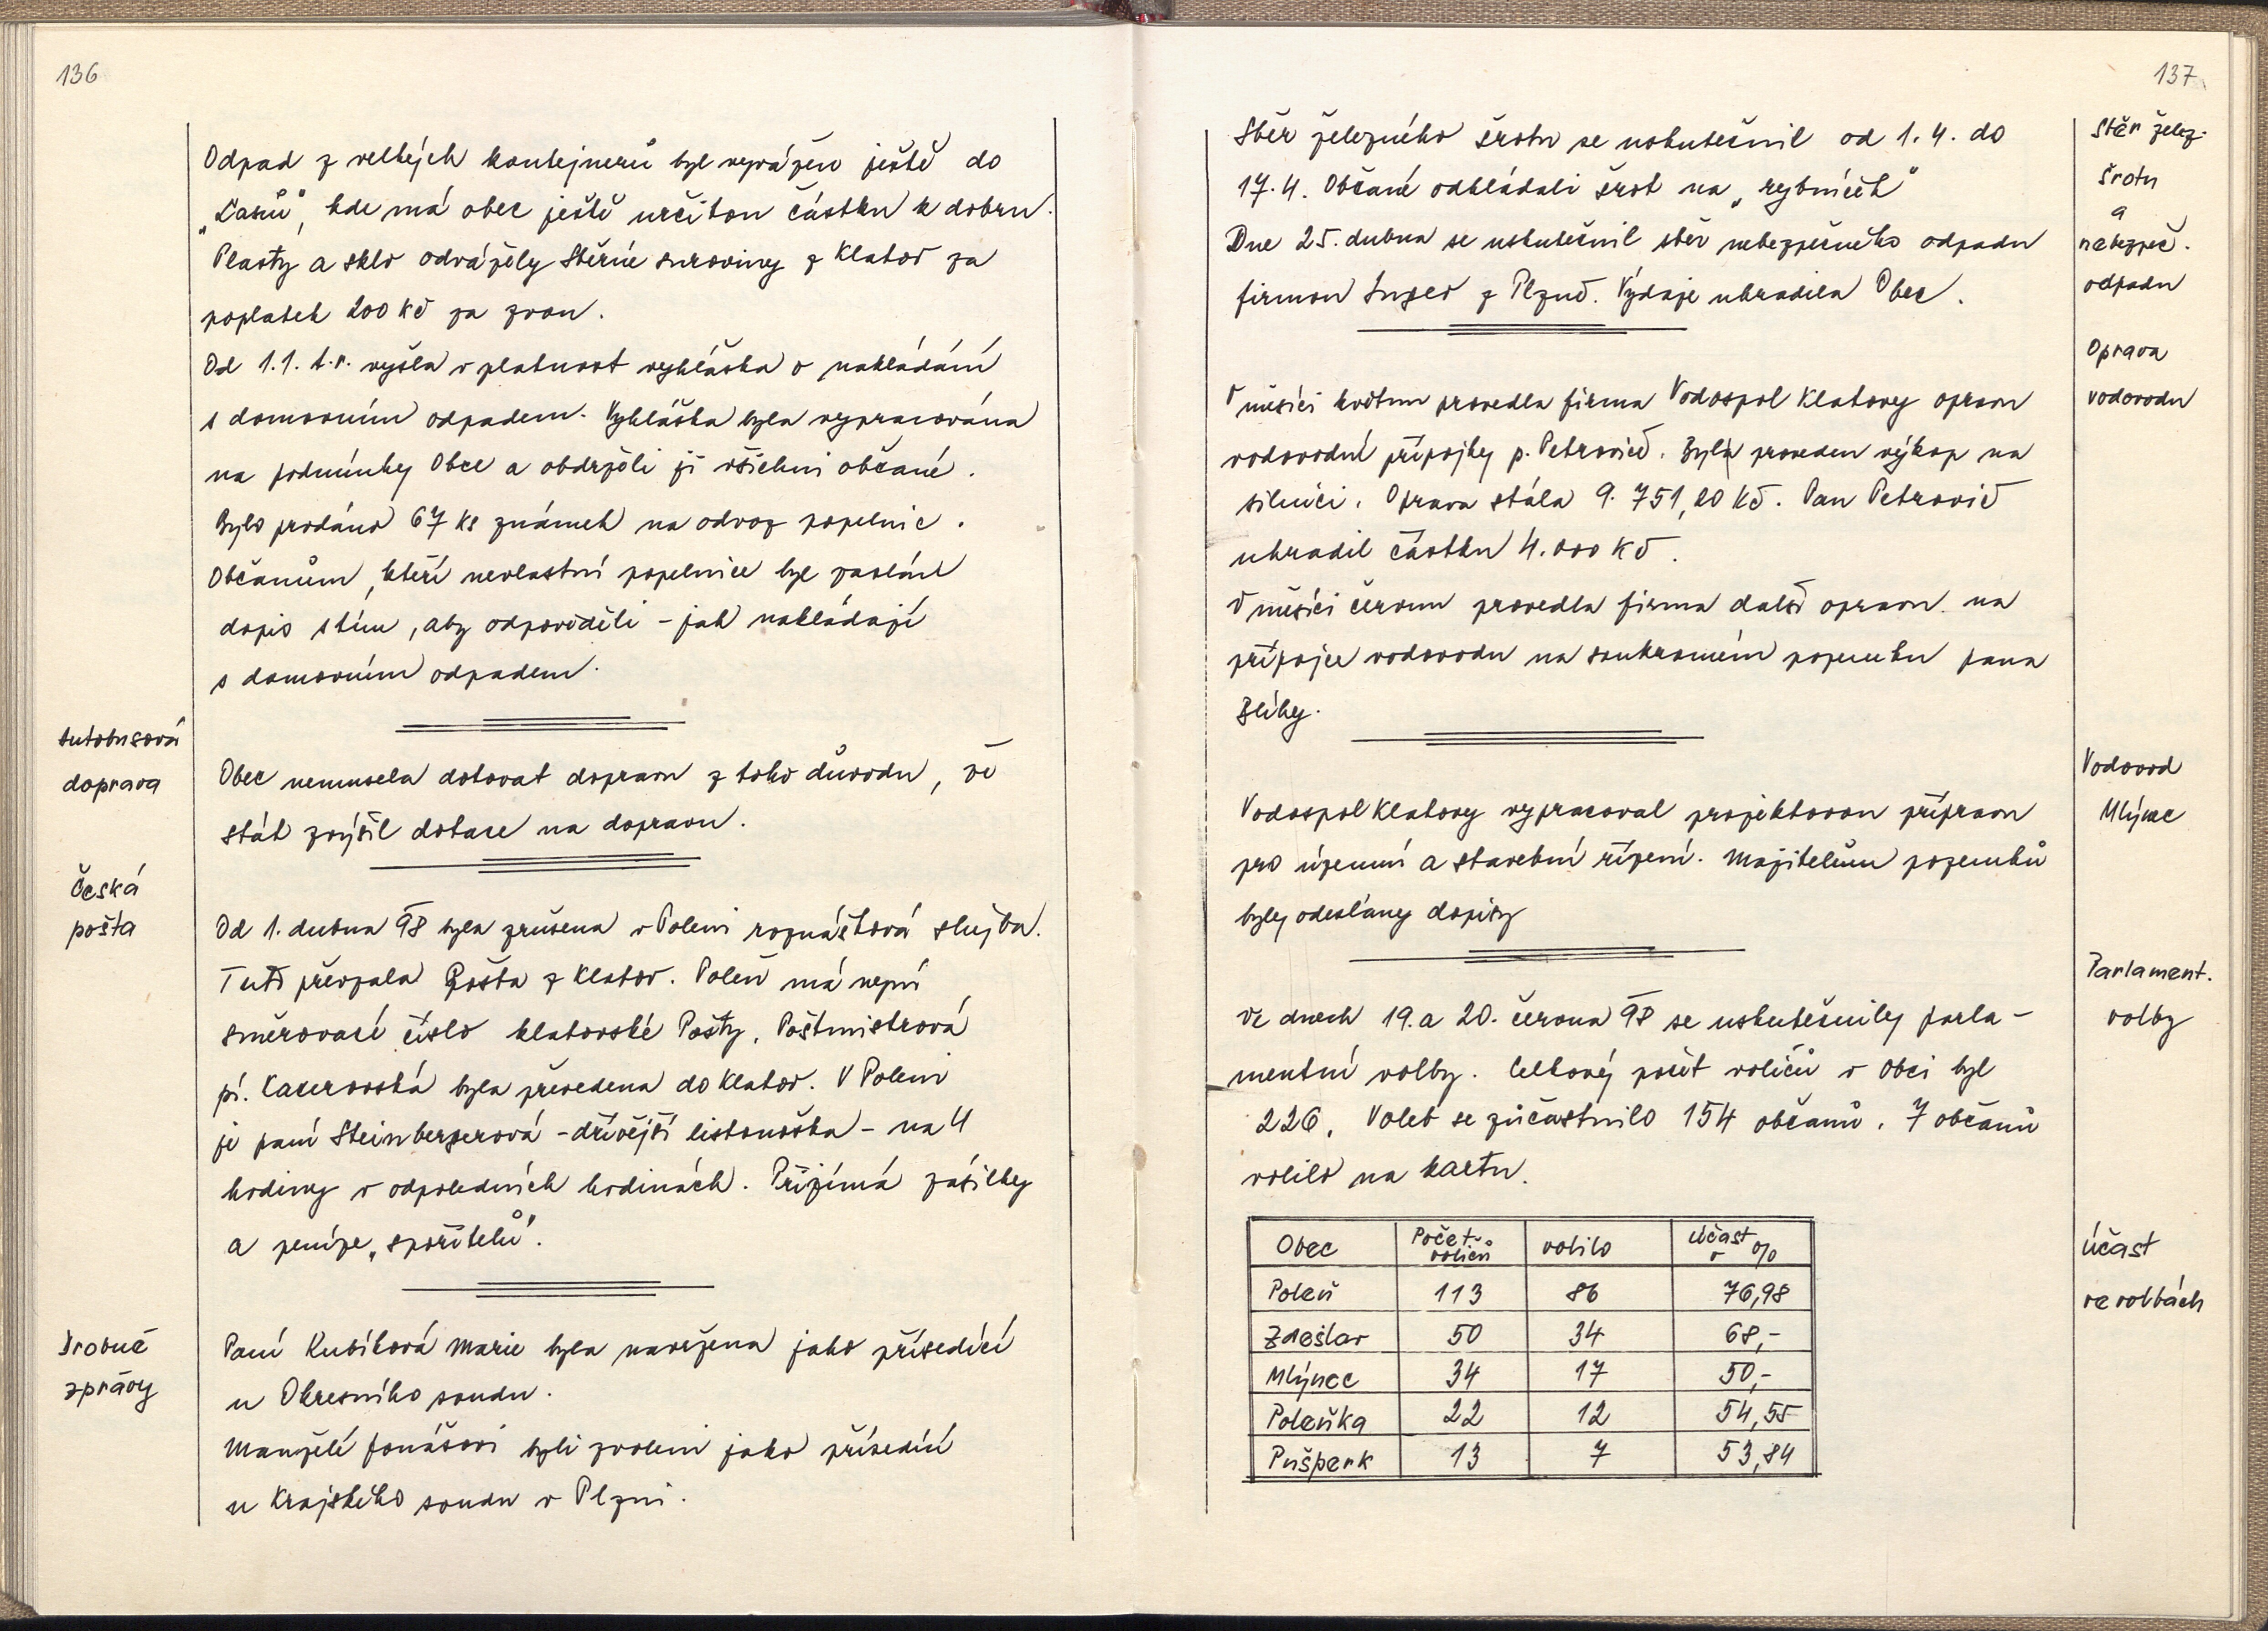 136
Odpad z velkých kontejnerů byl vyvážen ještě do
„Lasů", kde má obec ještě určitou částku k dobru.
Plasty a sklo odvážely Sběrné suroviny z Klatov za
poplatek 200 Kč za zvon.
Od 1.1. t.r. vyšla v platnost vyhláška o nakládání
s domovním odpadem. Vyhláška byla vypracována
na podmínky Obce a obdrželi ji všichni občané.
Bylo prodáno 67 ks známek na odvoz popelnic.
Občanům, kteří nevlastní popelnice byl zaslán
dopis s tím, aby odpověděli – jak nakládají
s domovním odpadem.
Autobusová
doprava
Obec nemusela dotovat dopravu z toho důvodu, že
stát zvýšil dotace na dopravu.
Česká
pošta
Od 1. dubna 98 byla zrušena v Poleni roznášková služba.
Tuto převzala Pošta z Klatov. Poleň má nyní
směrovací číslo klatovské Pošty. Poštmistrová
pí. Kacerovská byla převedena do Klatov. V Poleni
je paní Steinbergerová – dřívější listonoška – na 4
hodiny v odpoledních hodinách. Přijímá zásilky
a peníze „spořitelů".
Drobné
zprávy
Paní Kubíková Marie byla navržena jako přísedící
u Okresního soudu.
Manželé Jonášovi byli zvoleni jako přísedící
u Krajského soudu v Plzni.
137
Sběr železného šrotu se uskutečnil od 1. 4. do
17. 4. Občané odkládali šrot na „rybnících"
Dne 25. dubna se uskutečnil sběr nebezpečného odpadu
firmou Ingeo z Plzně. Výdaje uhradila Obec.
Sběr želez.
šrotu
a
nebezpeč.
odpadu
Oprava
vodovodu
V měsíci květnu provedla firma Vodospol Klatovy opravu
vodovodní přípojky p. Petrovič. Byl proveden výkop na
silnici. Oprava stála 9.751,20 Kč. Pan Petrovič
uhradil částku 4.000 Kč.
V měsíci červnu provedla firma další opravu na
přípojce vodovodu na soukromém pozemku pana
Zlíky.
Vodovod
Mlýnec
Vodospol Klatovy vypracoval projektovou přípravu
pro územní a stavební řízení. Majitelům pozemků
byly odeslány dopisy
Parlament.
volby
Ve dnech 19. a 20. června 98 se uskutečnily parla-
mentní volby. Celkový počet voličů v Obci byl
226. Voleb se zúčastnilo 154 občanů. 7 občanů
volilo na kartu.
Účast
ve volbách
Obec Počet voličů volilo Účast v %
Poleň 113 86 76,98
Zdeslav 50 34 68,-
Mlýnec 34 17 50,-
Poleňka 22 12 54,55
Pušperk 13 7 53,84